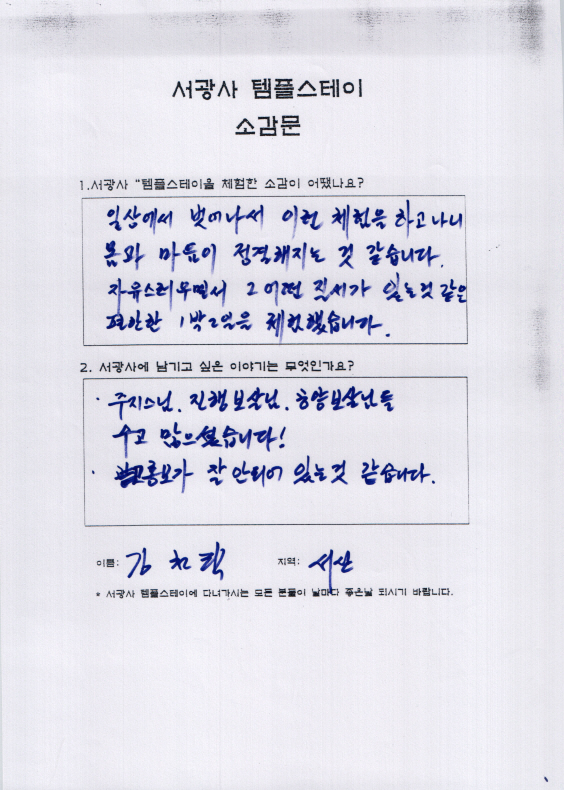 서광사 템플스테이
소감문
1.서광사 "템플스테이을 체험한 소감이 어땠나요?
일상에서 벗어나서 이런 체험을 하고나니
몸과 마음이 정결해지는 것 같습니다.
자유스러우면서 그 어떤 질서가 있는것 같은
편안한 1박2일을 체험했습니다.
2. 서광사에 남기고 싶은 이야기는 무엇인가요?
· 주지스님. 진행보살님. 공양보살님들
수고 많으셨습니다!
· 홍보가 잘 안되어 있는것 같습니다.
이름: 김 택 지역: 서산
* 서광사 템플스테이에 다녀가시는 모든 분들이 날마다 좋은날 되시기 바랍니다.